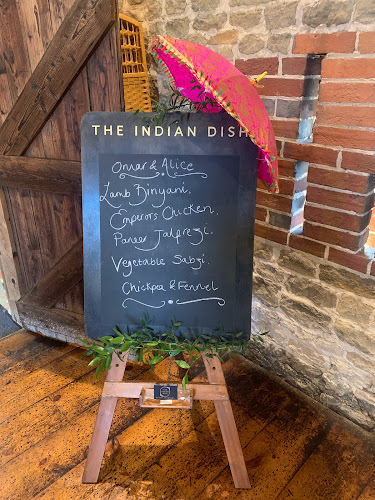 THE INDIAN DISH
Omar & Alice
Lamb Biryani.
Emperors Chicken.
Paneer Jalfrezi.
Vegetable Sabzi.
Chickpea & Fennel